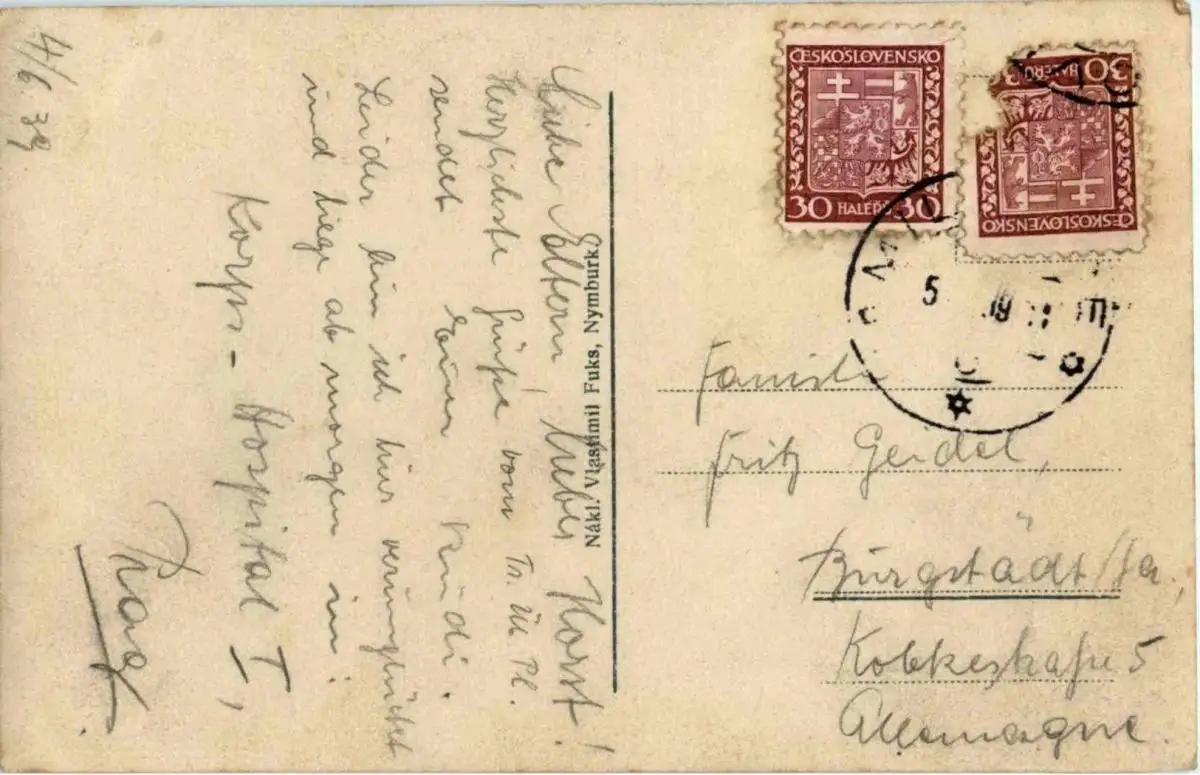 4/6.39
Liebe Eltern, lieber Horst!
Herzlichste Grüße vom Tr. Üb. Pl.
sendet Euer Rudi.
Leider bin ich hier verunglücket
und liege ab morgen im:
Korps-Hospital I,
Prag
Nákl. Vlastimil Fuks, Nymburk.
ČESKOSLOVENSKO
30 HALÉŘŮ 30
ČESKOSLOVENSKO
30 HALÉŘŮ 3
5
Familie
Fritz Geidel,
Burgstädt/Sa.
straße 5
Allemagne.